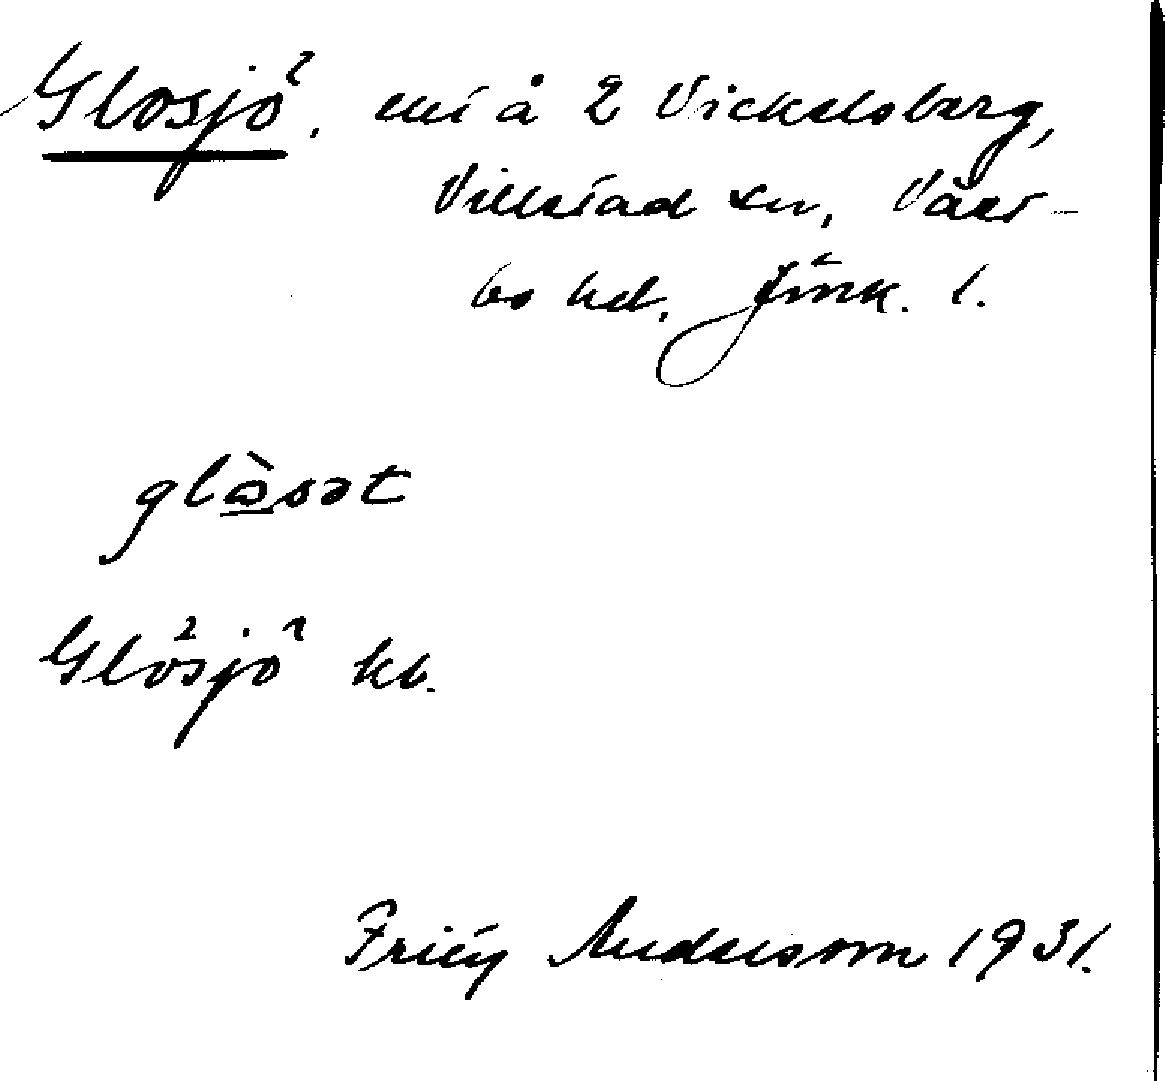 Glosjö, ut å 2 Vickelsberg,
Villstad sn, Väst-
bo hd. Jönk. l.
glòsət
Glösjö kb.
Frity Anderson 1931.